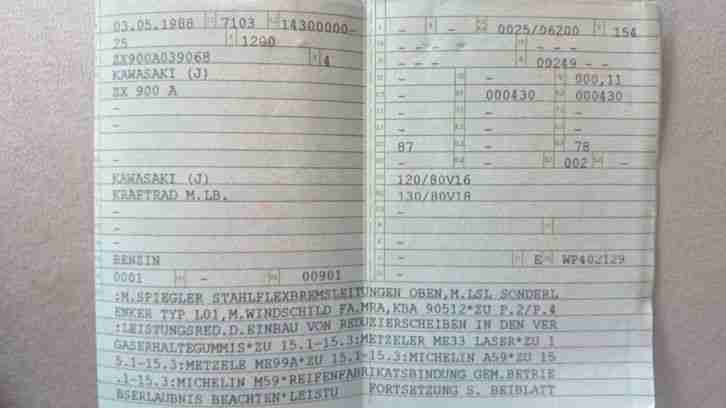 03.05.1988 7103 14300000-
25 1200
ZX900A039068 4
KAWASAKI (J)
ZX 900 A
-
-
-
-
KAWASAKI (J)
KRAFTRAD M.LB.
-
-
-
BENZIN
0001 - 00901
- - 0025/06200 154
- - - - - -
- - - 00249 - -
- - 000,11
- 000430 000430
- - -
87 - 78
- - 002 -
120/80V16
130/80V18
-
-
- E WP402129
-
:M.SPIEGLER STAHLFLEXBREMSLEITUNGEN OBEN,M.LSL SONDERL
ENKER TYP L01,M.WINDSCHILD FA.MRA,KBA 90512*ZU P.2/P.4
:LEISTUNGSRED.D.EINBAU VON REDUZIERSCHEIBEN IN DEN VER
GASERHALTEGUMMIS*ZU 15.1-15.3:METZELER ME33 LASER*ZU 1
5.1-15.3:METZELE ME99A*ZU 15.1-15.3:MICHELIN A59*ZU 15
.1-15.3:MICHELIN M59*REIFENFABRIKATSBINDUNG GEM.BETRIE
BSERLAUBNIS BEACHTEN*LEISTU FORTSETZUNG S. BEIBLATT